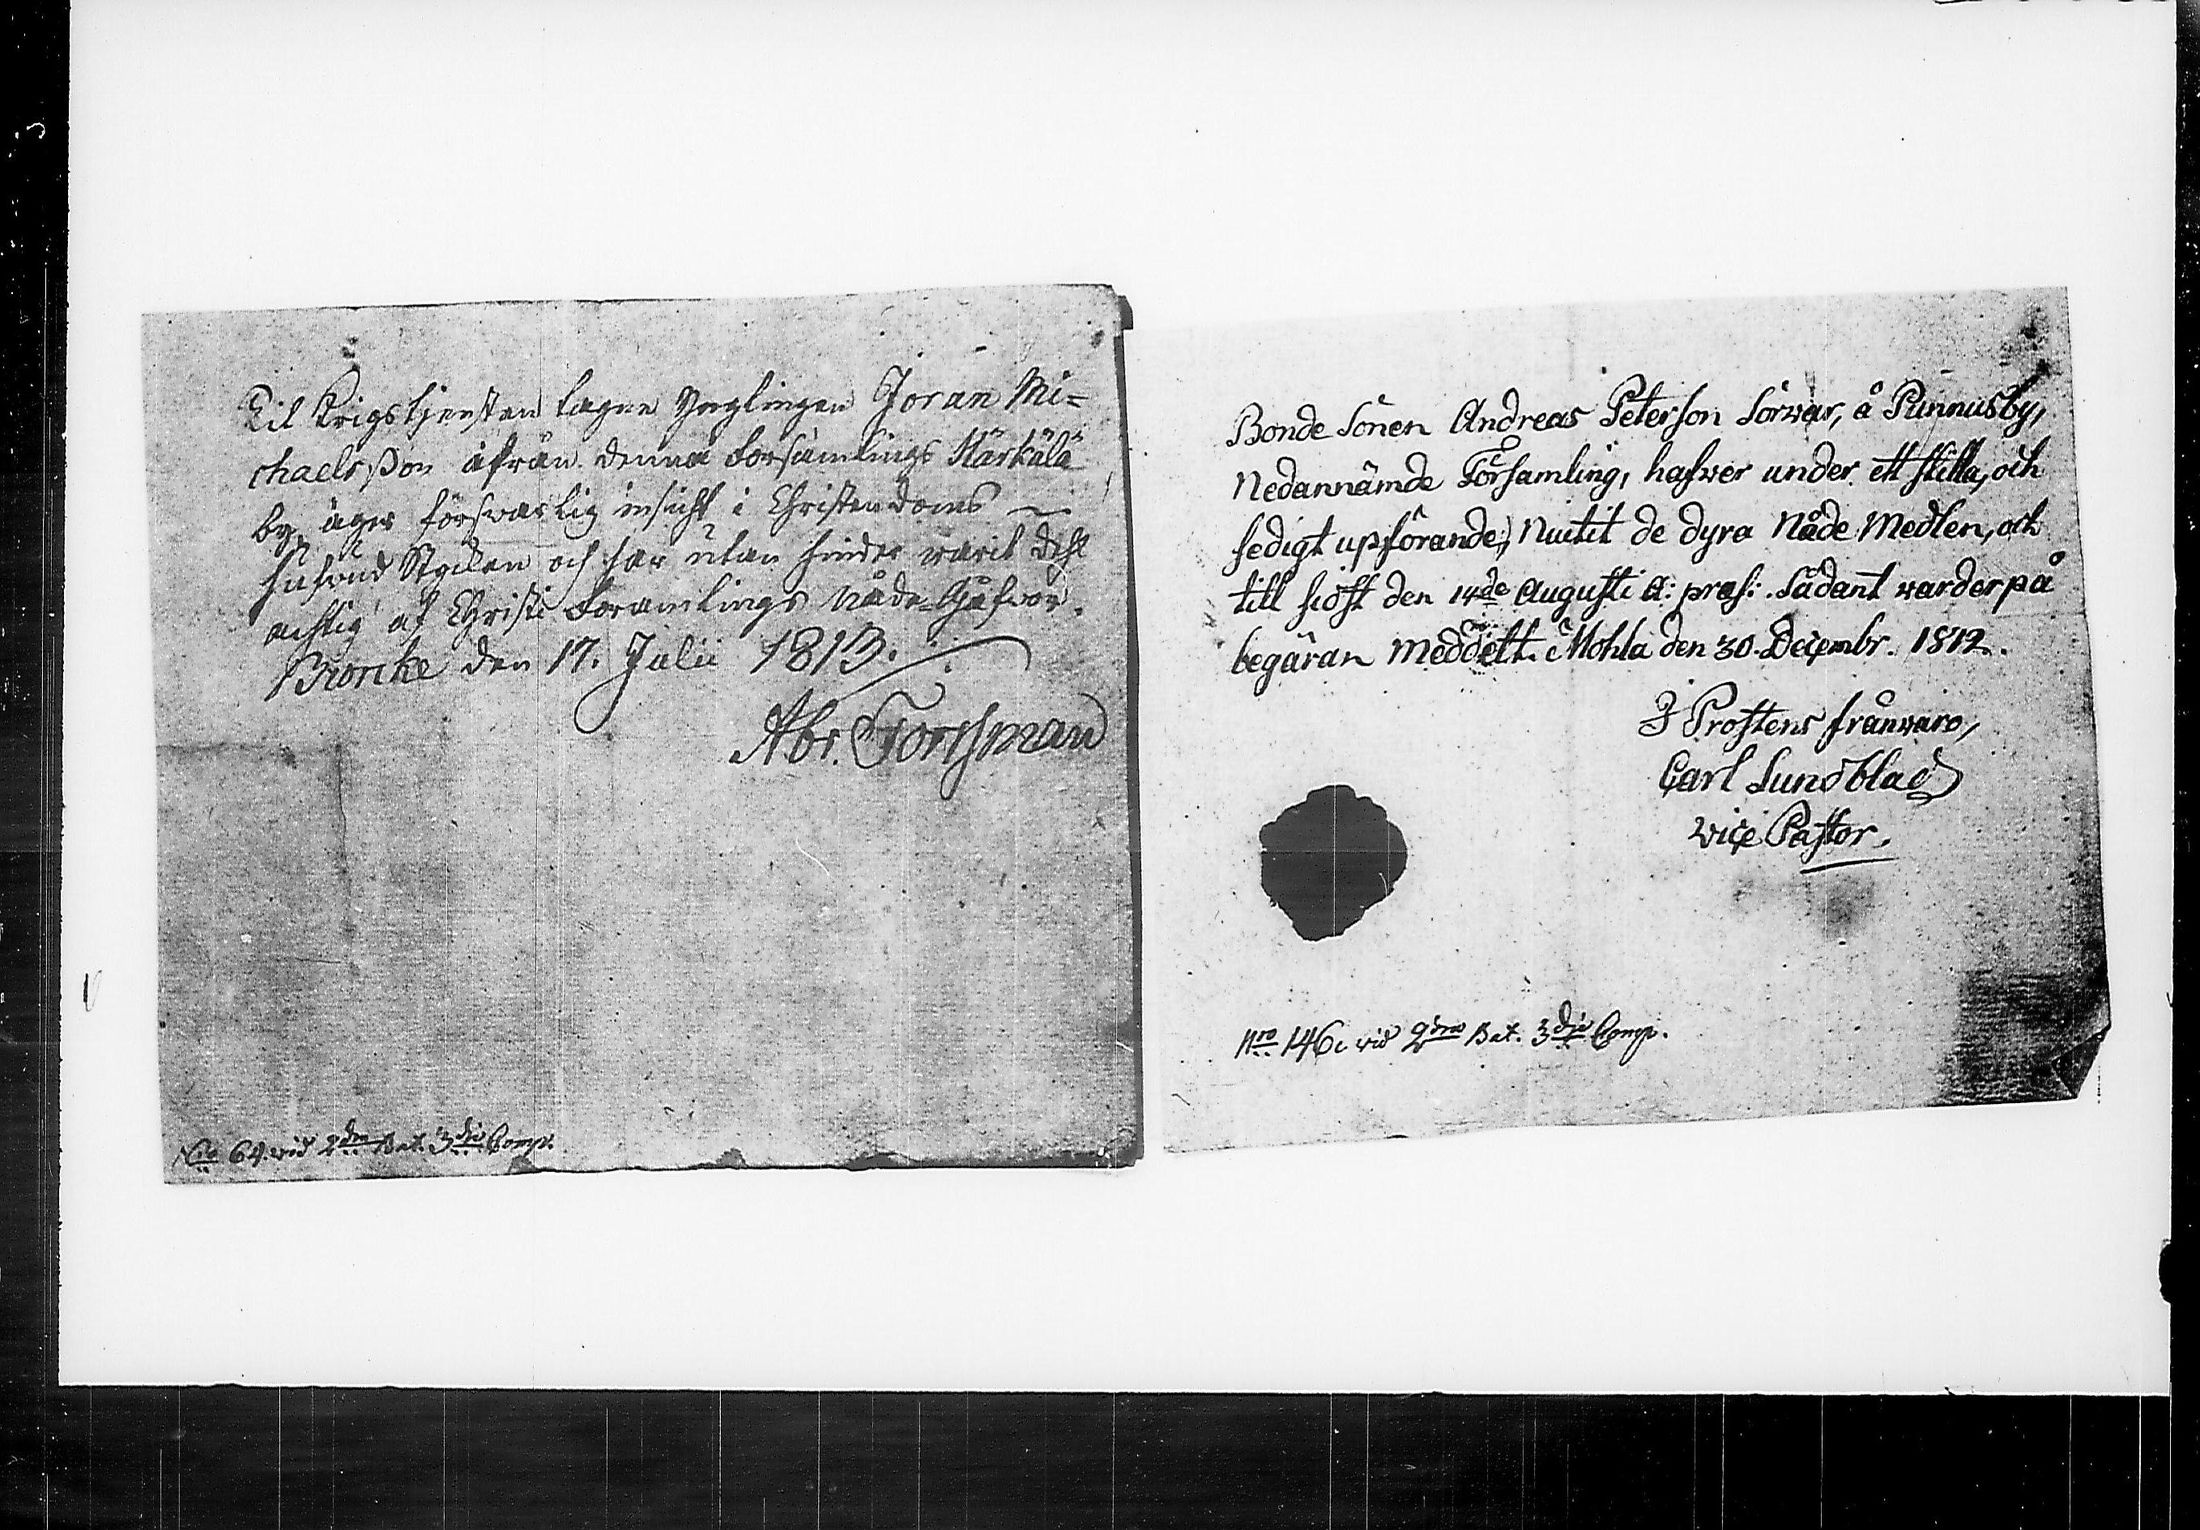 Til Krigstjensten tagne Ynglingen Joran Mi=
chaelsßon ifrån denna Forsamlings Härkälä
by, äger förswarlig insicht i Christendoms
hufvud Stycken och har utan hinder warit dehl
achtig af Christi Foramlings Nåde-Gåfvor.
den 17. Julii 1813.
Abr. Forssman
Nro 64 wid 2dra Bat. 3dje Comp.
Bonde Sonen Andreas Peterson Sorwar, å Punnusby,
Nedannämde Församling, hafwer under ett stilla, och
sedigt upförande, Niutit de dyra Nåde Medlen, och
till sidst den 14de Augusti A: præs: Sådant warder på
begäran Meddelt. Mohla den 30. Decembr. 1812.
I Prostens frånwaro,
Carl Lundblad
vice Pastor.
Nro 146 wid 2dra Bat. 3dje Comp.